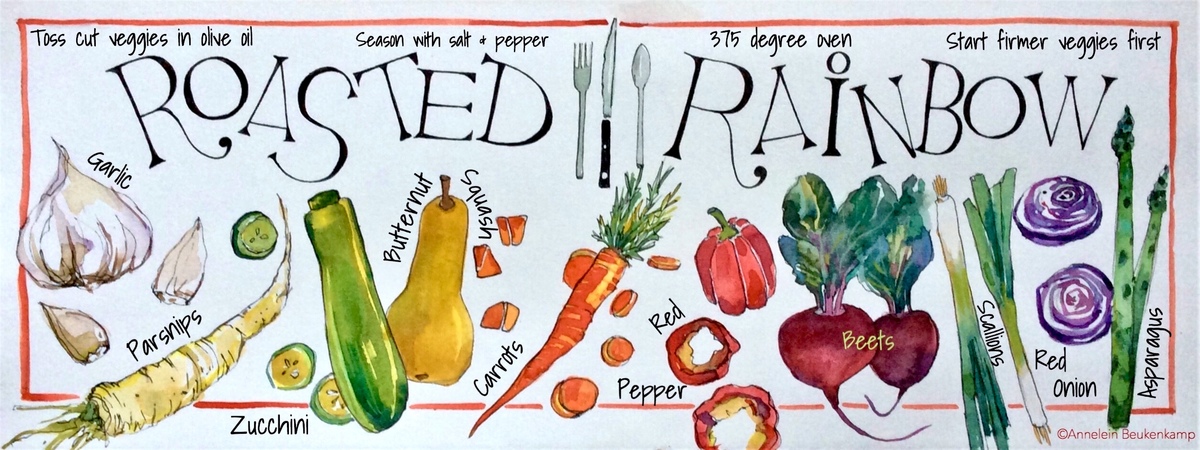 Toss cut veggies in olive oil
Season with salt & pepper
375 degree oven
Start firmer veggies first
ROASTED RAINBOW
Garlic
Parsnips
Zucchini
Butternut
Squash
Carrots
Red
Pepper
Beets
Scallions
Red
Onion
Asparagus
©Annelein Beukenkamp